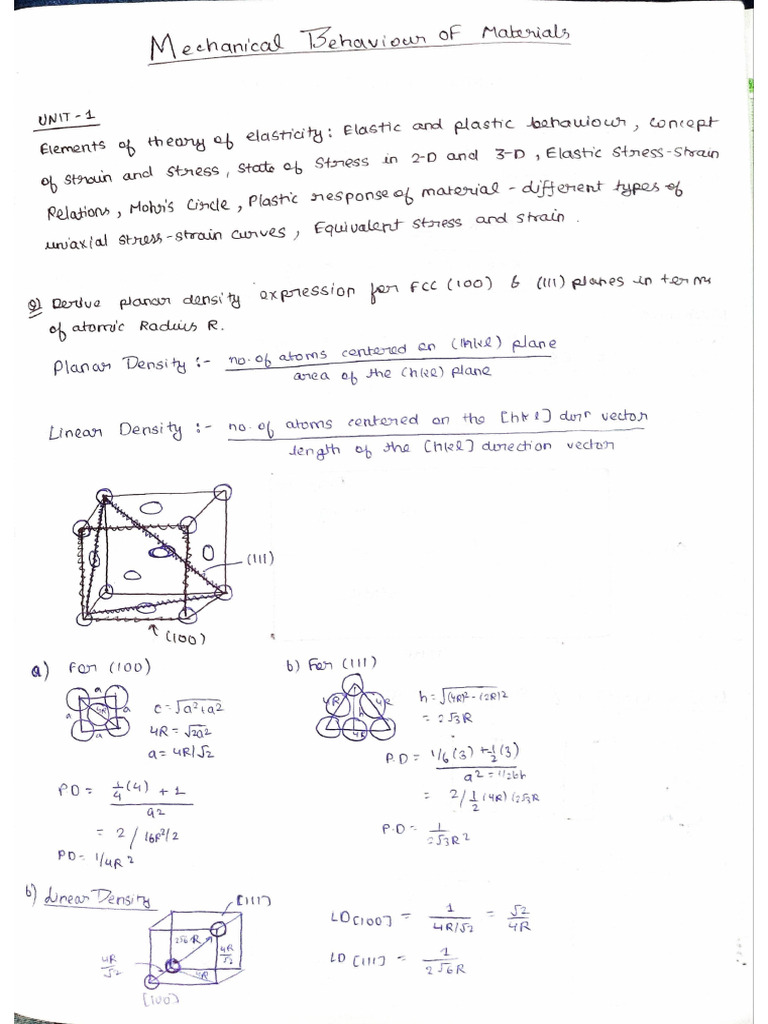 Mechanical Behaviour of Materials
UNIT-1
Elements of theory of elasticity: Elastic and plastic behaviour, concept
of strain and stress, state of stress in 2-D and 3-D, Elastic stress-strain
Relations, Mohr's Circle, Plastic response of material - different types of
uniaxial stress-strain curves, Equivalent stress and strain.
Q) Derive planar density expression for FCC (100) & (111) planes in terms
of atomic Radius R.
Planar Density :- no. of atoms centered on (hkl) plane
area of the (hkl) plane
Linear Density :- no. of atoms centered on the [hkl] dirn vector
length of the [hkl] direction vector
(111)
(100)
a) For (100)
a
a
4R
a
a
c = √a²+a²
4R = √2a²
a = 4R/√2
PD = 1/4 (4) + 1
a2
= 2/16R²/2
PD = 1/4R²
b) For (111)
4R
4R
h
4R
h = √(4R)² - (2R)²
= 2√3R
P.D = 1/6 (3) + 1/2 (3)
a² = 1/2bh
= 2/ 1/2 (4R) (2√3R
P.D = 1/2√3R²
b) Linear Density
[111]
2√6R
4R/√2
4R/√2
4R
[100]
LD[100] = 1/4R/√2 = √2/4R
LD[111] = 1/2√6R